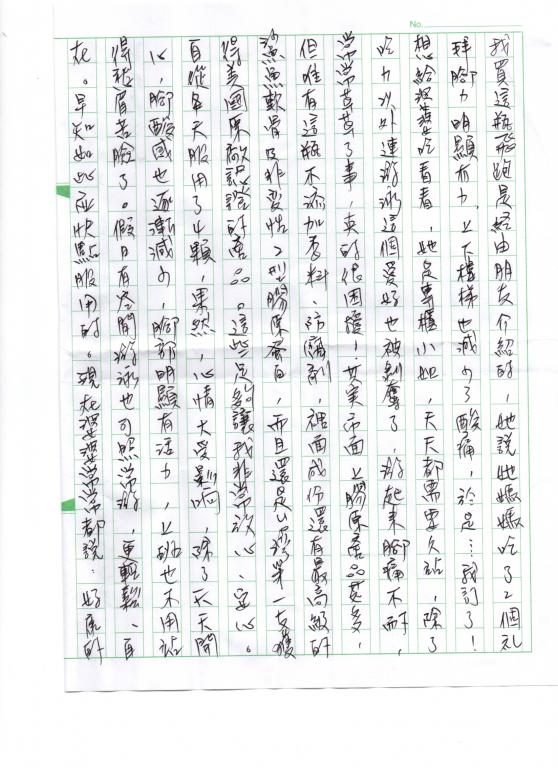 No.
我買這瓶飛跑是經由朋友介紹的,她說她媽媽吃了2個礼
拜腳力明顯有力,上下樓梯也減少了酸痛,於是…我訂了!
想給婆婆吃看看,她是專櫃小姐,天天都需要久站,除了
吃力以外連游泳這個愛好也被剝奪了,游起來腳痛不耐,
常常草草了事,真的很困擾!其實市面上膠原產品甚多,
但唯有這瓶不添加香料、防腐劑,裡面成份還有最高級的
鯊魚軟骨及非變性二型膠原蛋白,而且還是台灣第一支獲
得美國原廠認證的產品。這些足夠讓我非常放心、安心。
自從每天服用了4顆,果然,心情大受影响,除了天天開
心,腳酸感也逐漸減少,腳部明顯有活力,上班也不用站
得愁眉苦臉了。假日有空閒游泳也可照常游,更輕鬆、自
在。早知如此应快點服用的。現在婆婆常常都說:好厲的